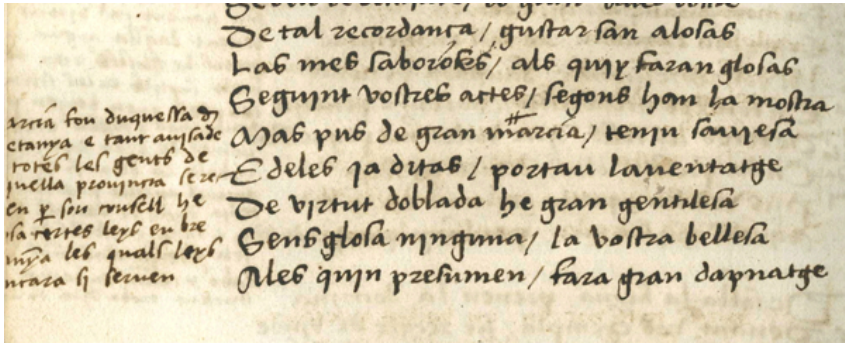 De tal recordança / gustar san alosas
Las mes saboroses / als quiy faran glosas
Seguint vostres actes / segons han la mostra
Mas pus de gran marcia / teniu saviesa
E deles ia ditas / portau laventatge
De virtut doblada he gran gentilesa
Sens glosa ninguna / la vostra bellesa
Ales quin presumen / fara gran dapnatge
arcia fou duquessa d
etanya e tant auisade
totes les gents de
quella prouincia sere
en per son consell he
sa certes leys en bre
anya les quals leys
ncara si seruen